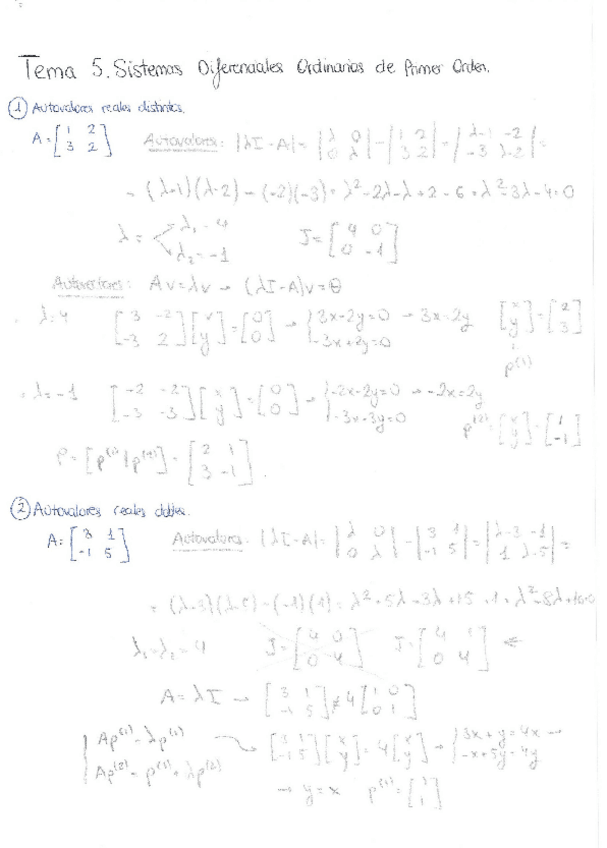 Tema 5. Sistemas Diferenciales Ordinarios de Primer Orden.
① Autovalores reales distintos.
A = [1 2; 3 2] Autovalores: |λI - A| = |λ 0; 0 λ| - |1 2; 3 2| = |λ-1 -2; -3 λ-2| =
= (λ-1)(λ-2) - (-2)(-3) = λ² - 2λ - λ + 2 - 6 = λ² - 3λ - 4 = 0
λ = < λ₁ = 4 λ₂ = -1 J = [4 0; 0 -1]
Autovectores: Av = λv → (λI - A)v = θ
· λ = 4 [3 -2; -3 2] [x; y] = [0; 0] → {3x - 2y = 0 → 3x = 2y; -3x + 2y = 0 [x; y] = [2; 3]
p⁽¹⁾
· λ = -1 [-2 -2; -3 -3] [x; y] = [0; 0] → {-2x - 2y = 0 → -2x = 2y; -3x - 3y = 0
p⁽²⁾ = [x; y] = [1; -1]
P = [p⁽¹⁾ | p⁽²⁾] = [2 1; 3 -1].
② Autovalores reales dobles.
A = [3 1; -1 5] Autovalores: |λI - A| = |λ 0; 0 λ| - |3 1; -1 5| = |λ-3 -1; 1 λ-5| =
= (λ-3)(λ-5) - (-1)(1) = λ² - 5λ - 3λ + 15 + 1 = λ² - 8λ + 16 = 0
λ₁ = λ₂ = 4 J = [4 0; 0 4] J = [4 1; 0 4] ⇐
A = λI → [3 1; -1 5] ≠ 4 [1 0; 0 1]
Ap⁽¹⁾ = λp⁽¹⁾ → [3 1; -1 5] [x; y] = 4 [x; y] → {3x + y = 4x →; -x + 5y = 4y
Ap⁽²⁾ = p⁽¹⁾ + λp⁽²⁾
→ y = x p⁽¹⁾ = [1; 1]